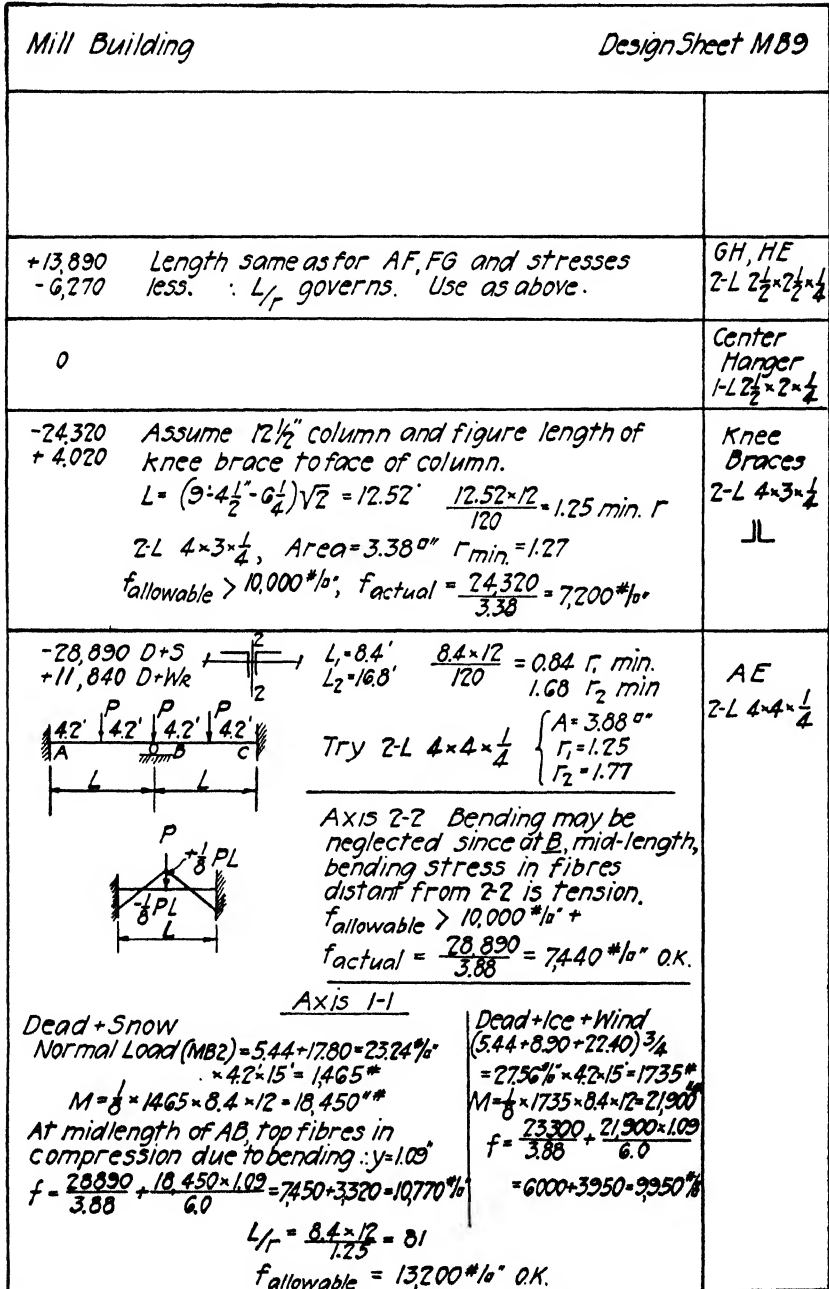 Mill Building Design Sheet MB9
+13,890 Length same as for AF, FG and stresses
-6,270 less. ∴ L/r governs. Use as above.
GH, HE
2-L 2½×2½×¼
0
Center
Hanger
1-L 2½×2×¼
-24,320 Assume 12½" column and figure length of
+4,020 knee brace to face of column.
L= (9'-4½"-6¼")√2 = 12.52' 12.52×12/120 = 1.25 min. r
2-L 4×3×¼, Area=3.38□" r min. = 1.27
f allowable > 10,000 #/□", f actual = 24,320/3.38 = 7,200 #/□"
Knee
Braces
2-L 4×3×¼
-28,890 D+S
+11,840 D+WR
2
2
L₁=8.4' 8.4×12/120 = 0.84 r₁ min.
L₂=16.8' 1.68 r₂ min
P P P
4.2' 4.2' 4.2' 4.2'
A B C
L L
Try 2-L 4×4×¼ { A=3.88□"
r₁=1.25
r₂=1.77
AE
2-L 4×4×¼
P
+⅛ PL
-⅛ PL
L
Axis 2-2 Bending may be
neglected since at B, mid-length,
bending stress in fibres
distant from 2-2 is tension.
f allowable > 10,000 #/□" +
f actual = 28,890/3.88 = 7,440 #/□" O.K.
Axis 1-1
Dead + Snow
Normal Load (MB2) = 5.44+17.80=23.24 #/□'
×4.2'×15' = 1,465 #
M=⅛×1465×8.4×12=18,450"#
At midlength of AB, top fibres in
compression due to bending ∴ y=1.09"
f = 28890/3.88 + 18,450×1.09/6.0 = 7,450+3,320=10,770 #/□"
Dead+Ice+Wind
(5.44+8.90+22.40) ¾
=27.56 #/□' ×4.2×15'=1735 #
M=⅛×1735×8.4×12=21,900"#
f = 23300/3.88 + 21,900×1.09/6.0
=6000+3950=9,950 #/□"
L/r = 8.4×12/1.25 = 81
f allowable = 13,200 #/□" O.K.